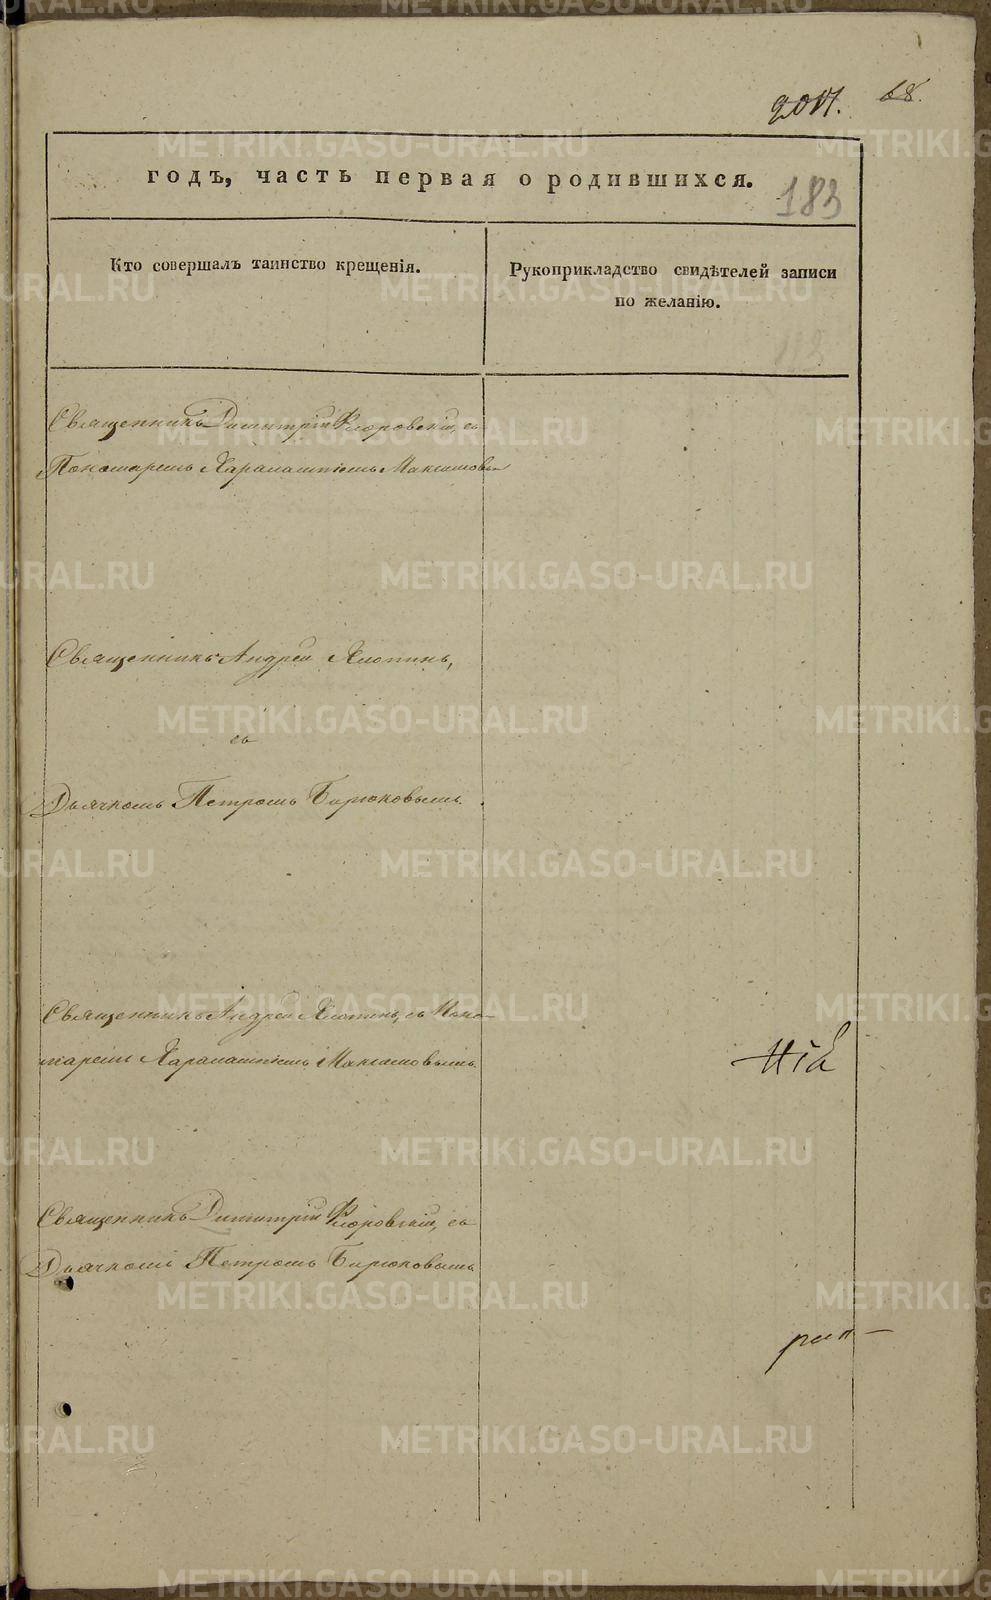 68.
183
годъ, часть первая о родившихся.
Кто совершалъ таинство крещенія.
Рукоприкладство свидѣтелей записи
по желанію.
Священникъ Димитрій Флоровскій, съ
Пономаремъ Харалампіемъ Максимовы
Священникъ Андрей Хлопинъ,
съ
Дьячкомъ Петромъ Бирюковымъ.
Священникъ Андрей Хлопинъ, съ Поно-
маремъ Харалампіемъ Максимовымъ.
Священникъ Димитрій Флоровскій, съ
Дьячкомъ Петромъ Бирюковымъ
METRIKI.GASO-URAL.RU